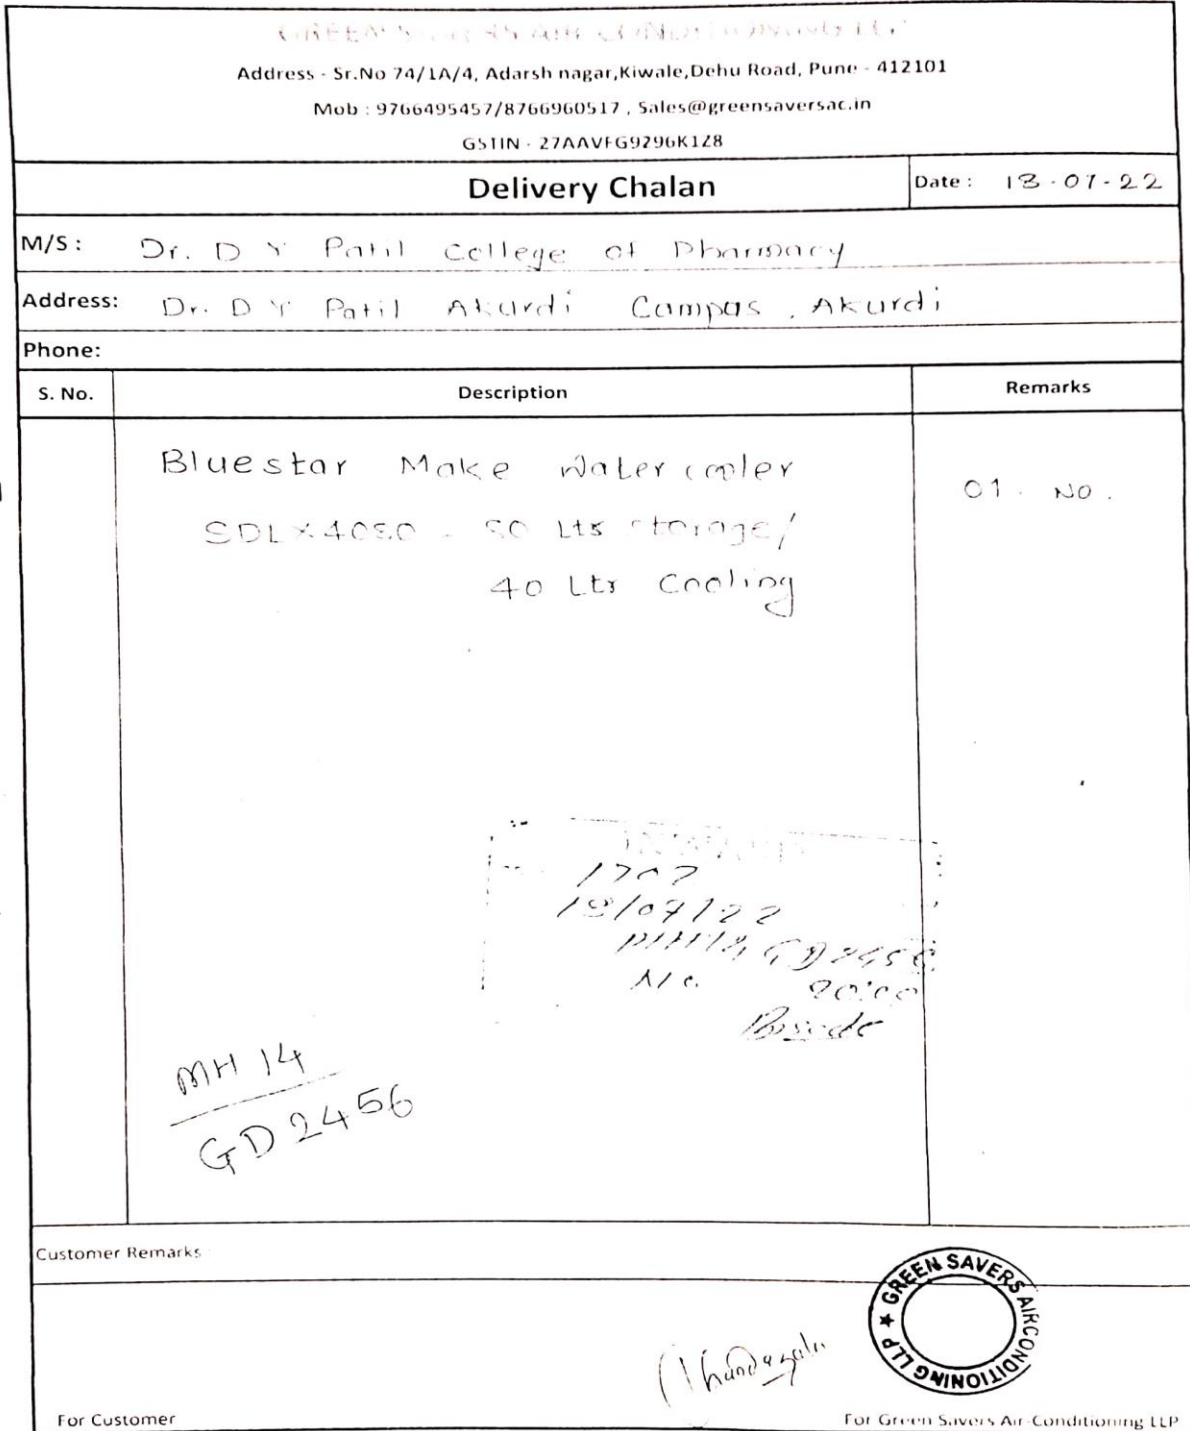 GREEN SAVERS AIR CONDITIONING LLP
Address - Sr.No 74/1A/4, Adarsh nagar,Kiwale,Dehu Road, Pune - 412101
Mob : 9766495457/8766960517 , Sales@greensaversac.in
GSTIN - 27AAVFG9296K1Z8
Delivery Chalan
Date : 18-07-22
M/S : Dr. D Y Patil College of Pharmacy
Address: Dr. D Y Patil Akurdi Campus, Akurdi
Phone:
S. No. Description Remarks
Bluestar Make Water cooler
01. NO.
SDLX4080 - 80 Lts storage/
40 Ltr Cooling
18/07/22
MH14 GD2456
MH 14
GD 2456
Customer Remarks :
GREEN SAVERS AIRCONDITIONING LLP ★
For Customer
For Green Savers Air-Conditioning LLP